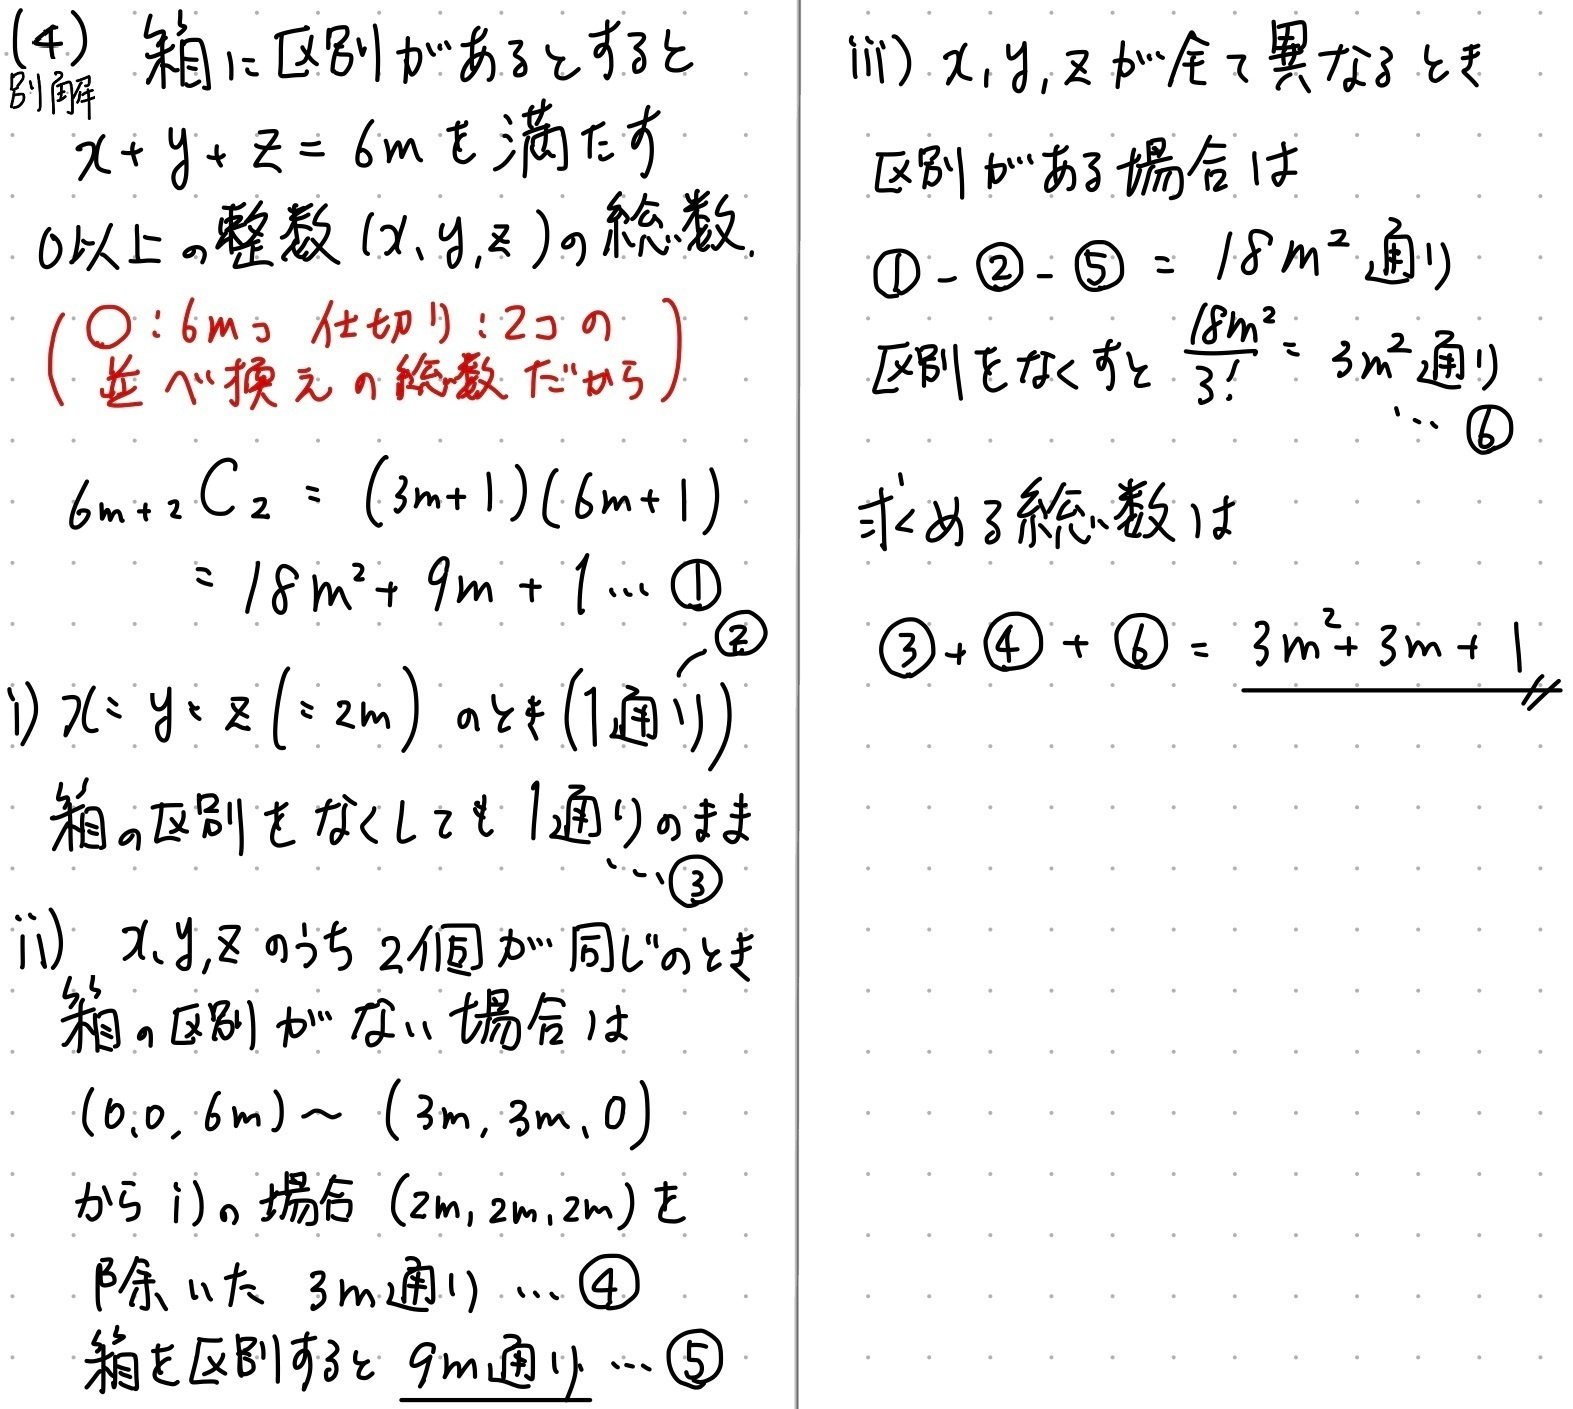 (4) 箱に区別があるとすると
別解
x+y+z=6mを満たす
0以上の整数(x,y,z)の総数.
(○:6mコ 仕切り:2コの
並べ換えの総数だから)
6m+2C2 = (3m+1)(6m+1)
= 18m²+9m+1…①
②
i) x=y=z(=2m)のとき(1通り)
箱の区別をなくしても1通りのまま
…③
ii) x,y,zのうち2個が同じのとき
箱の区別がない場合は
(0,0,6m)〜(3m,3m,0)
からi)の場合(2m,2m,2m)を
除いた 3m通り…④
箱を区別すると 9m通り…⑤
iii) x,y,zが全て異なるとき
区別がある場合は
①-②-⑤ = 18m²通り
区別をなくすと 18m²/3! = 3m²通り
…⑥
求める総数は
③+④+⑥ = 3m²+3m+1